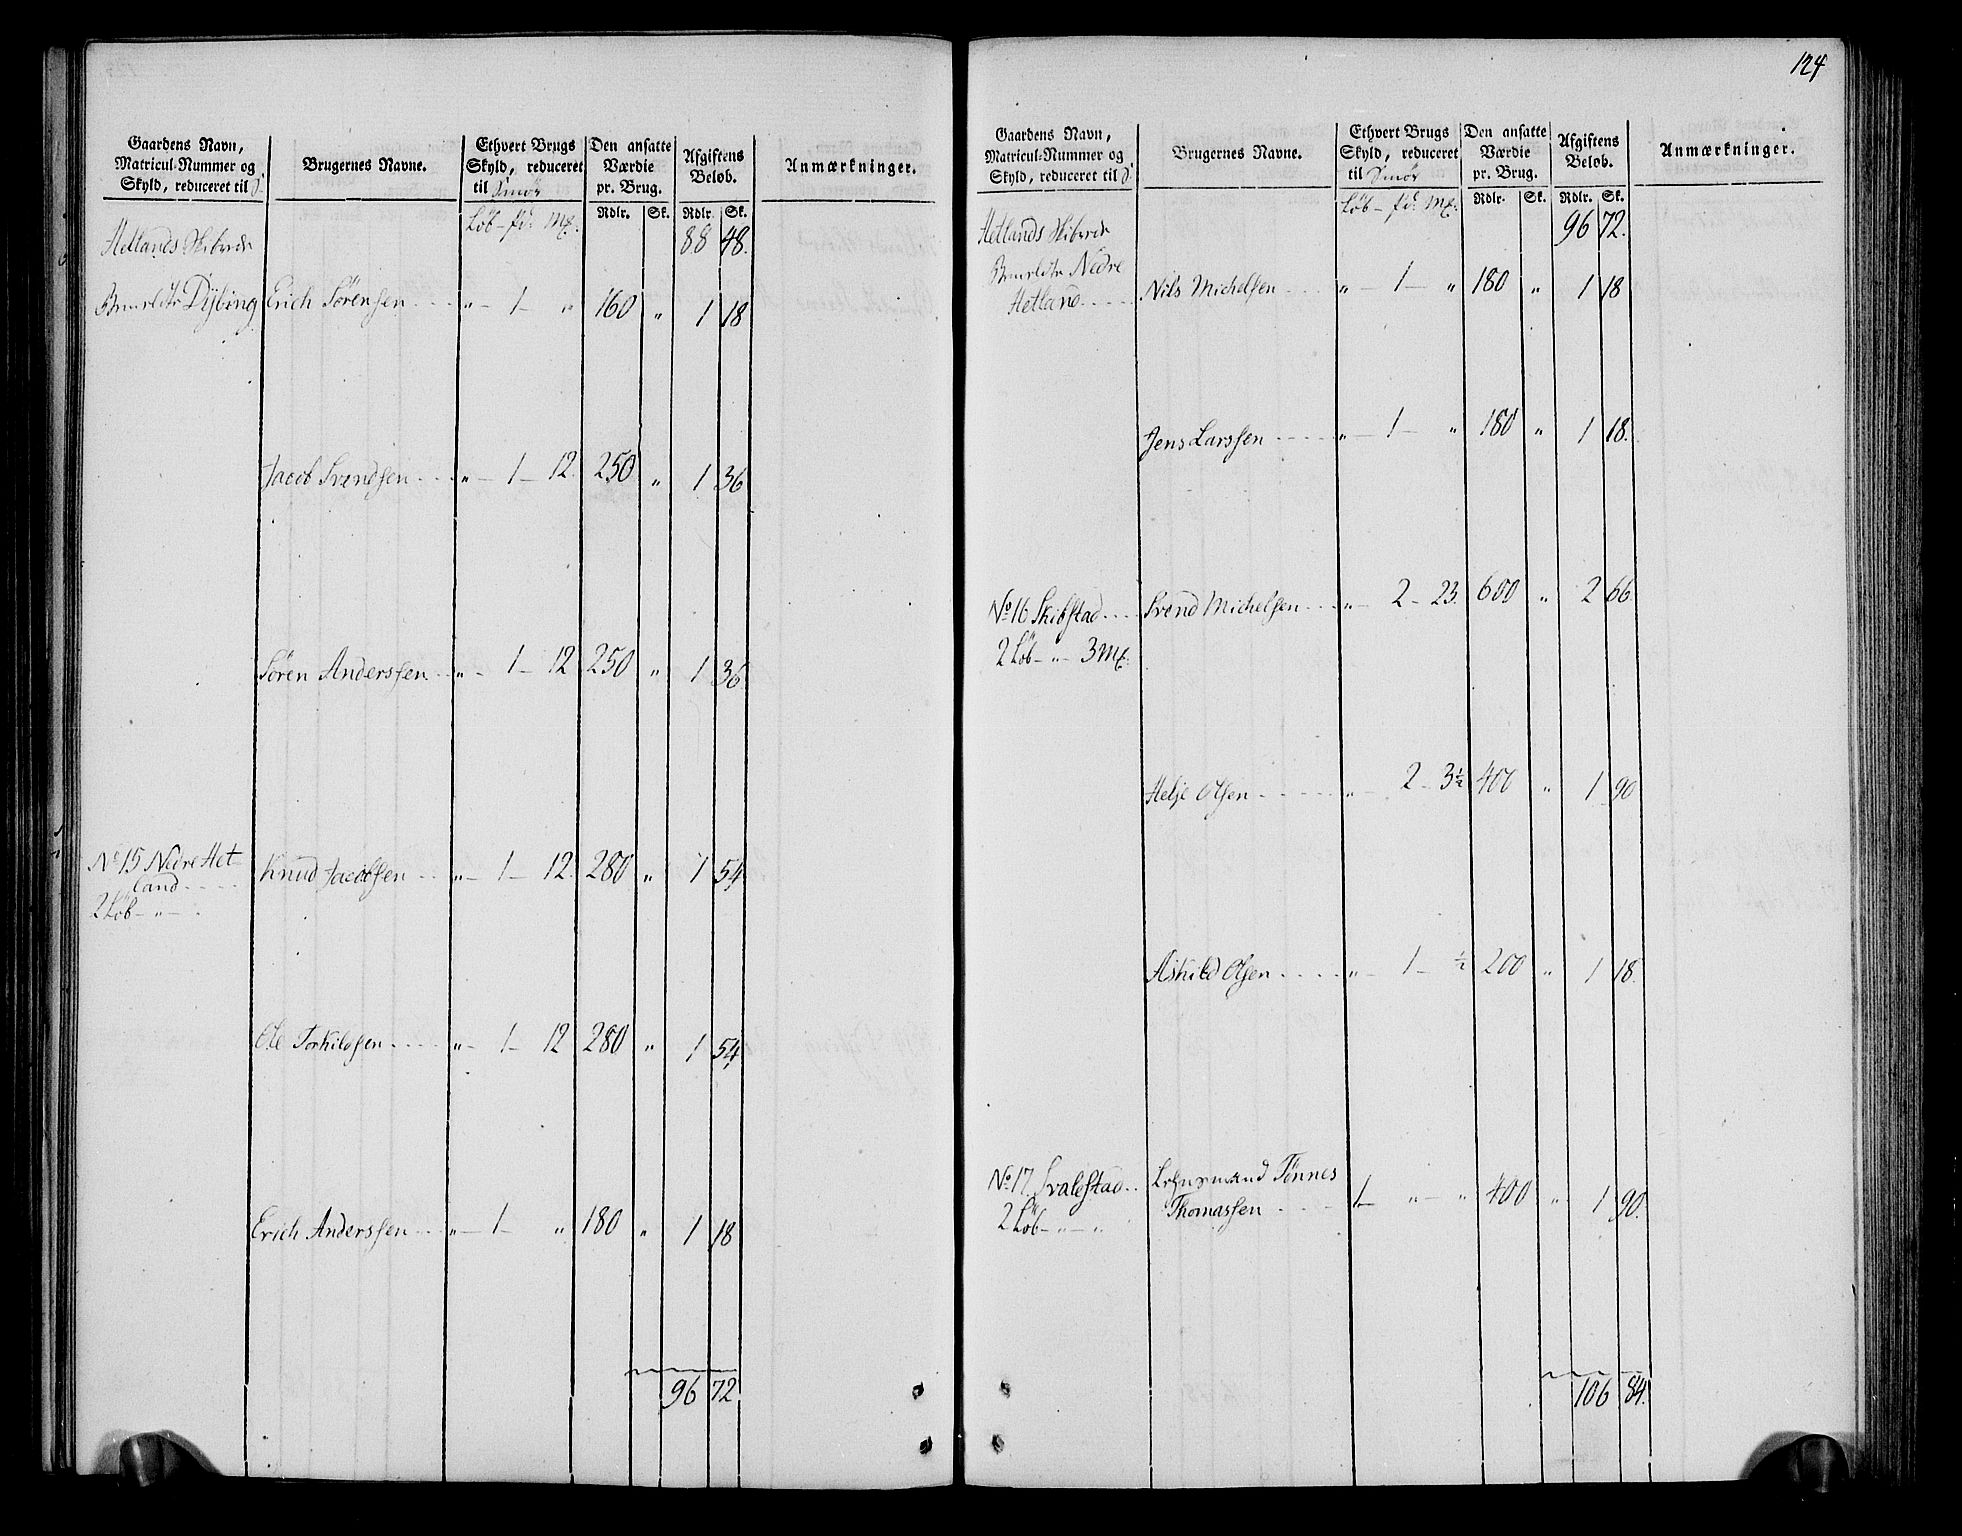 Gaardens Navn, Matricul-Nummer og Skyld, reduceret til
Brugernes Navne.
Ethvert Brugs Skyld, reduceret til Smör
Den ansatte Værdie pr. Brug.
Afgiftens Beløb.
Anmærkninger.
Rdlr. Sk. Rdlr. Sk.
Løb - pd: Mg.
Hetlands Skibrede 88 48.
Dÿbing Erich Sörensen " - 1 - " 160 " 1 18
Jacob Svendsen " - 1 - 12. 250 " 1 36
Sören Anderssen " - 1 - 12 250 " 1 36
No 15 Nedre Het-
land Knud Jacobsen " - 1 - 12. 280 " 1 54
2 Löb - " -
Ole Torkildsen " - 1 - 12 280 " 1 54
Erich Anderssen " - 1 - " 180 " 1 18
96 72
124
Gaardens Navn, Matricul-Nummer og Skyld, reduceret til
Brugernes Navne.
Ethvert Brugs Skyld, reduceret til Smör
Den ansatte Værdie pr. Brug.
Afgiftens Beløb.
Anmærkninger.
Rdlr. Sk. Rdlr. Sk.
Løb - pd: Mg.
Hetlands Skibrede 96 72.
Nedre
Hetland Nils Michelsen " - 1 - " 180 " 1 18
Jens Larssen " - 1 - " 180 " 1 18.
No 16 Skibstad Svend Michelsen " - 2 - 23. 600 " 2 66
2 Löb - " - 3 Mg.
Helje Olsen " - 2 - 3½ 400 " 1 90
Askild Olsen " - 1 - ½ 200 " 1 18.
No 17. Svalestad Lehnsmand Tönnes
2 Löb - " - " Thomassen 1 - " - " 400 " 1 90.
106 84.